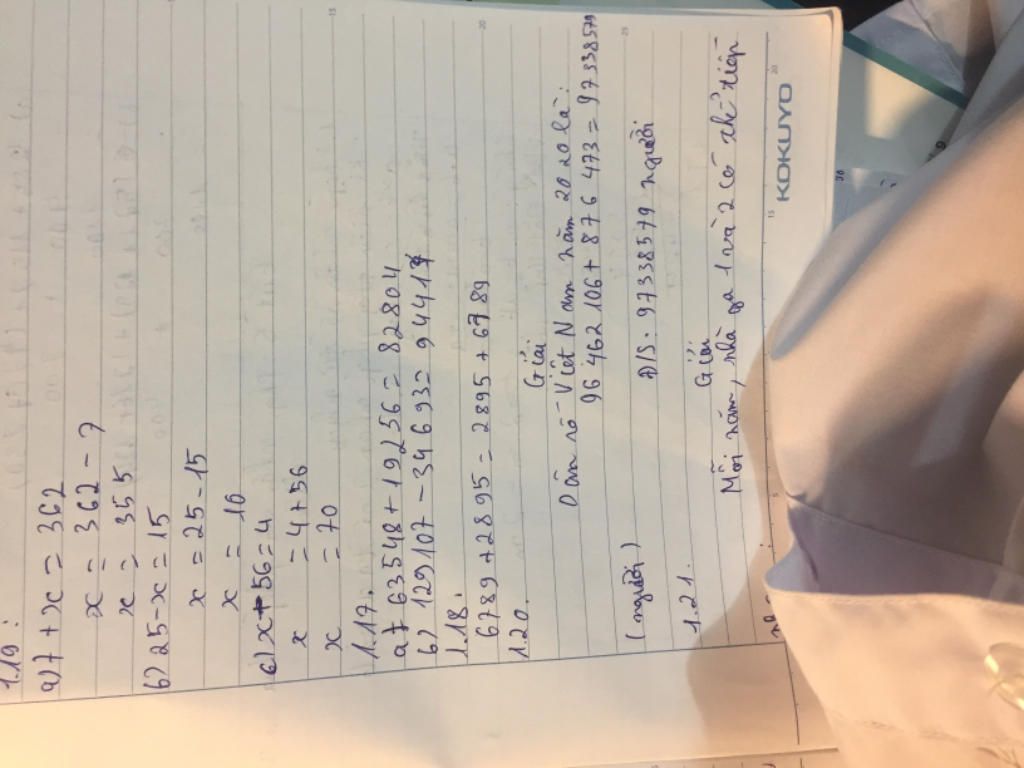 1.19:
a) 7 + x = 362
x = 362 - 7
x = 355
b) 25 - x = 15
x = 25 - 15
x = 10
c) x - 56 = 4
x = 4 + 56
x = 70
1.17.
a) 63548 + 19256 = 82804
b) 129107 - 34693 = 94414
1.18.
6789 + 2895 = 2895 + 6789
1.20.
Giải
Dân số Việt Nam năm 2020 là:
96 462 106 + 876 473 = 97338579
(người)
Đ/S: 97338579 người
1.21.
Giải
Mỗi năm, nhà ga 1 và 2 có thể tiếp
KOKUYO